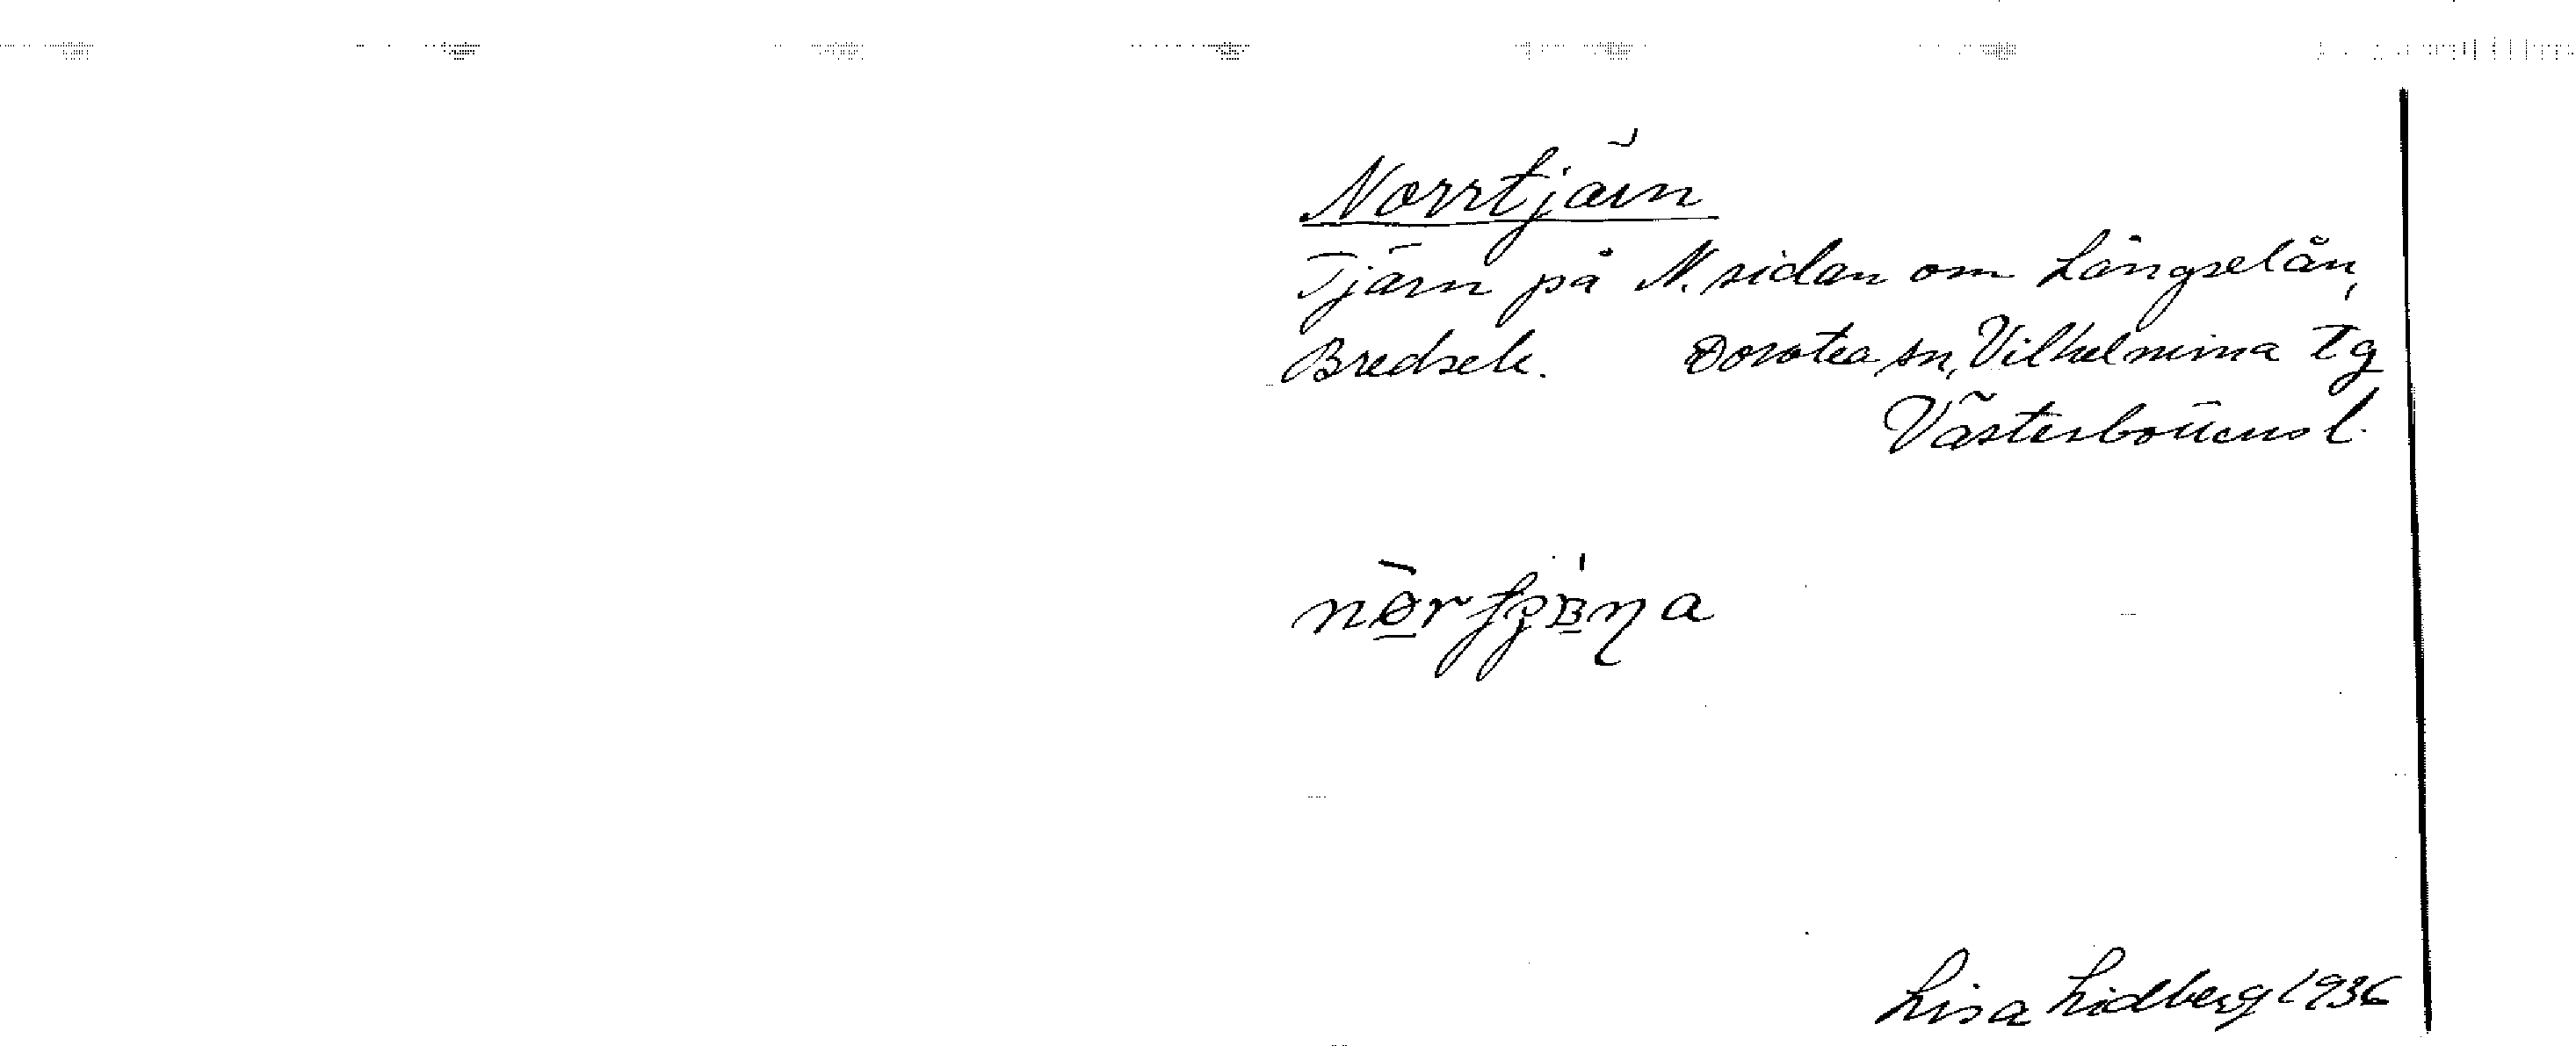 Norrtjärn
Tjärn på N. sidan om Långselån,
Bredsele. Dorotea sn, Vilhelmina tg
Västerbottens l.
Lisa Lidberg 1936